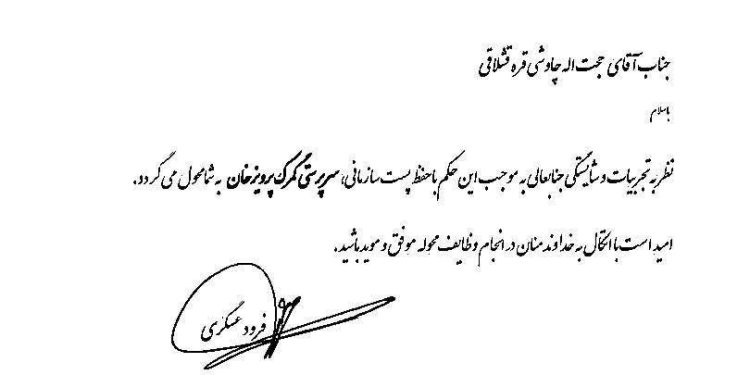 جناب آقای حجت اله چاوشی قره قشلاقی
باسلام
نظر به تجربیات و شایستگی جنابعالی به موجب این حکم با حفظ پست سازمانی، سرپرستی گمرک پرویزخان به شما محول می گردد.
امید است با اتکال به خداوند منان در انجام وظایف محوله موفق و موید باشید.
فرود عسگری